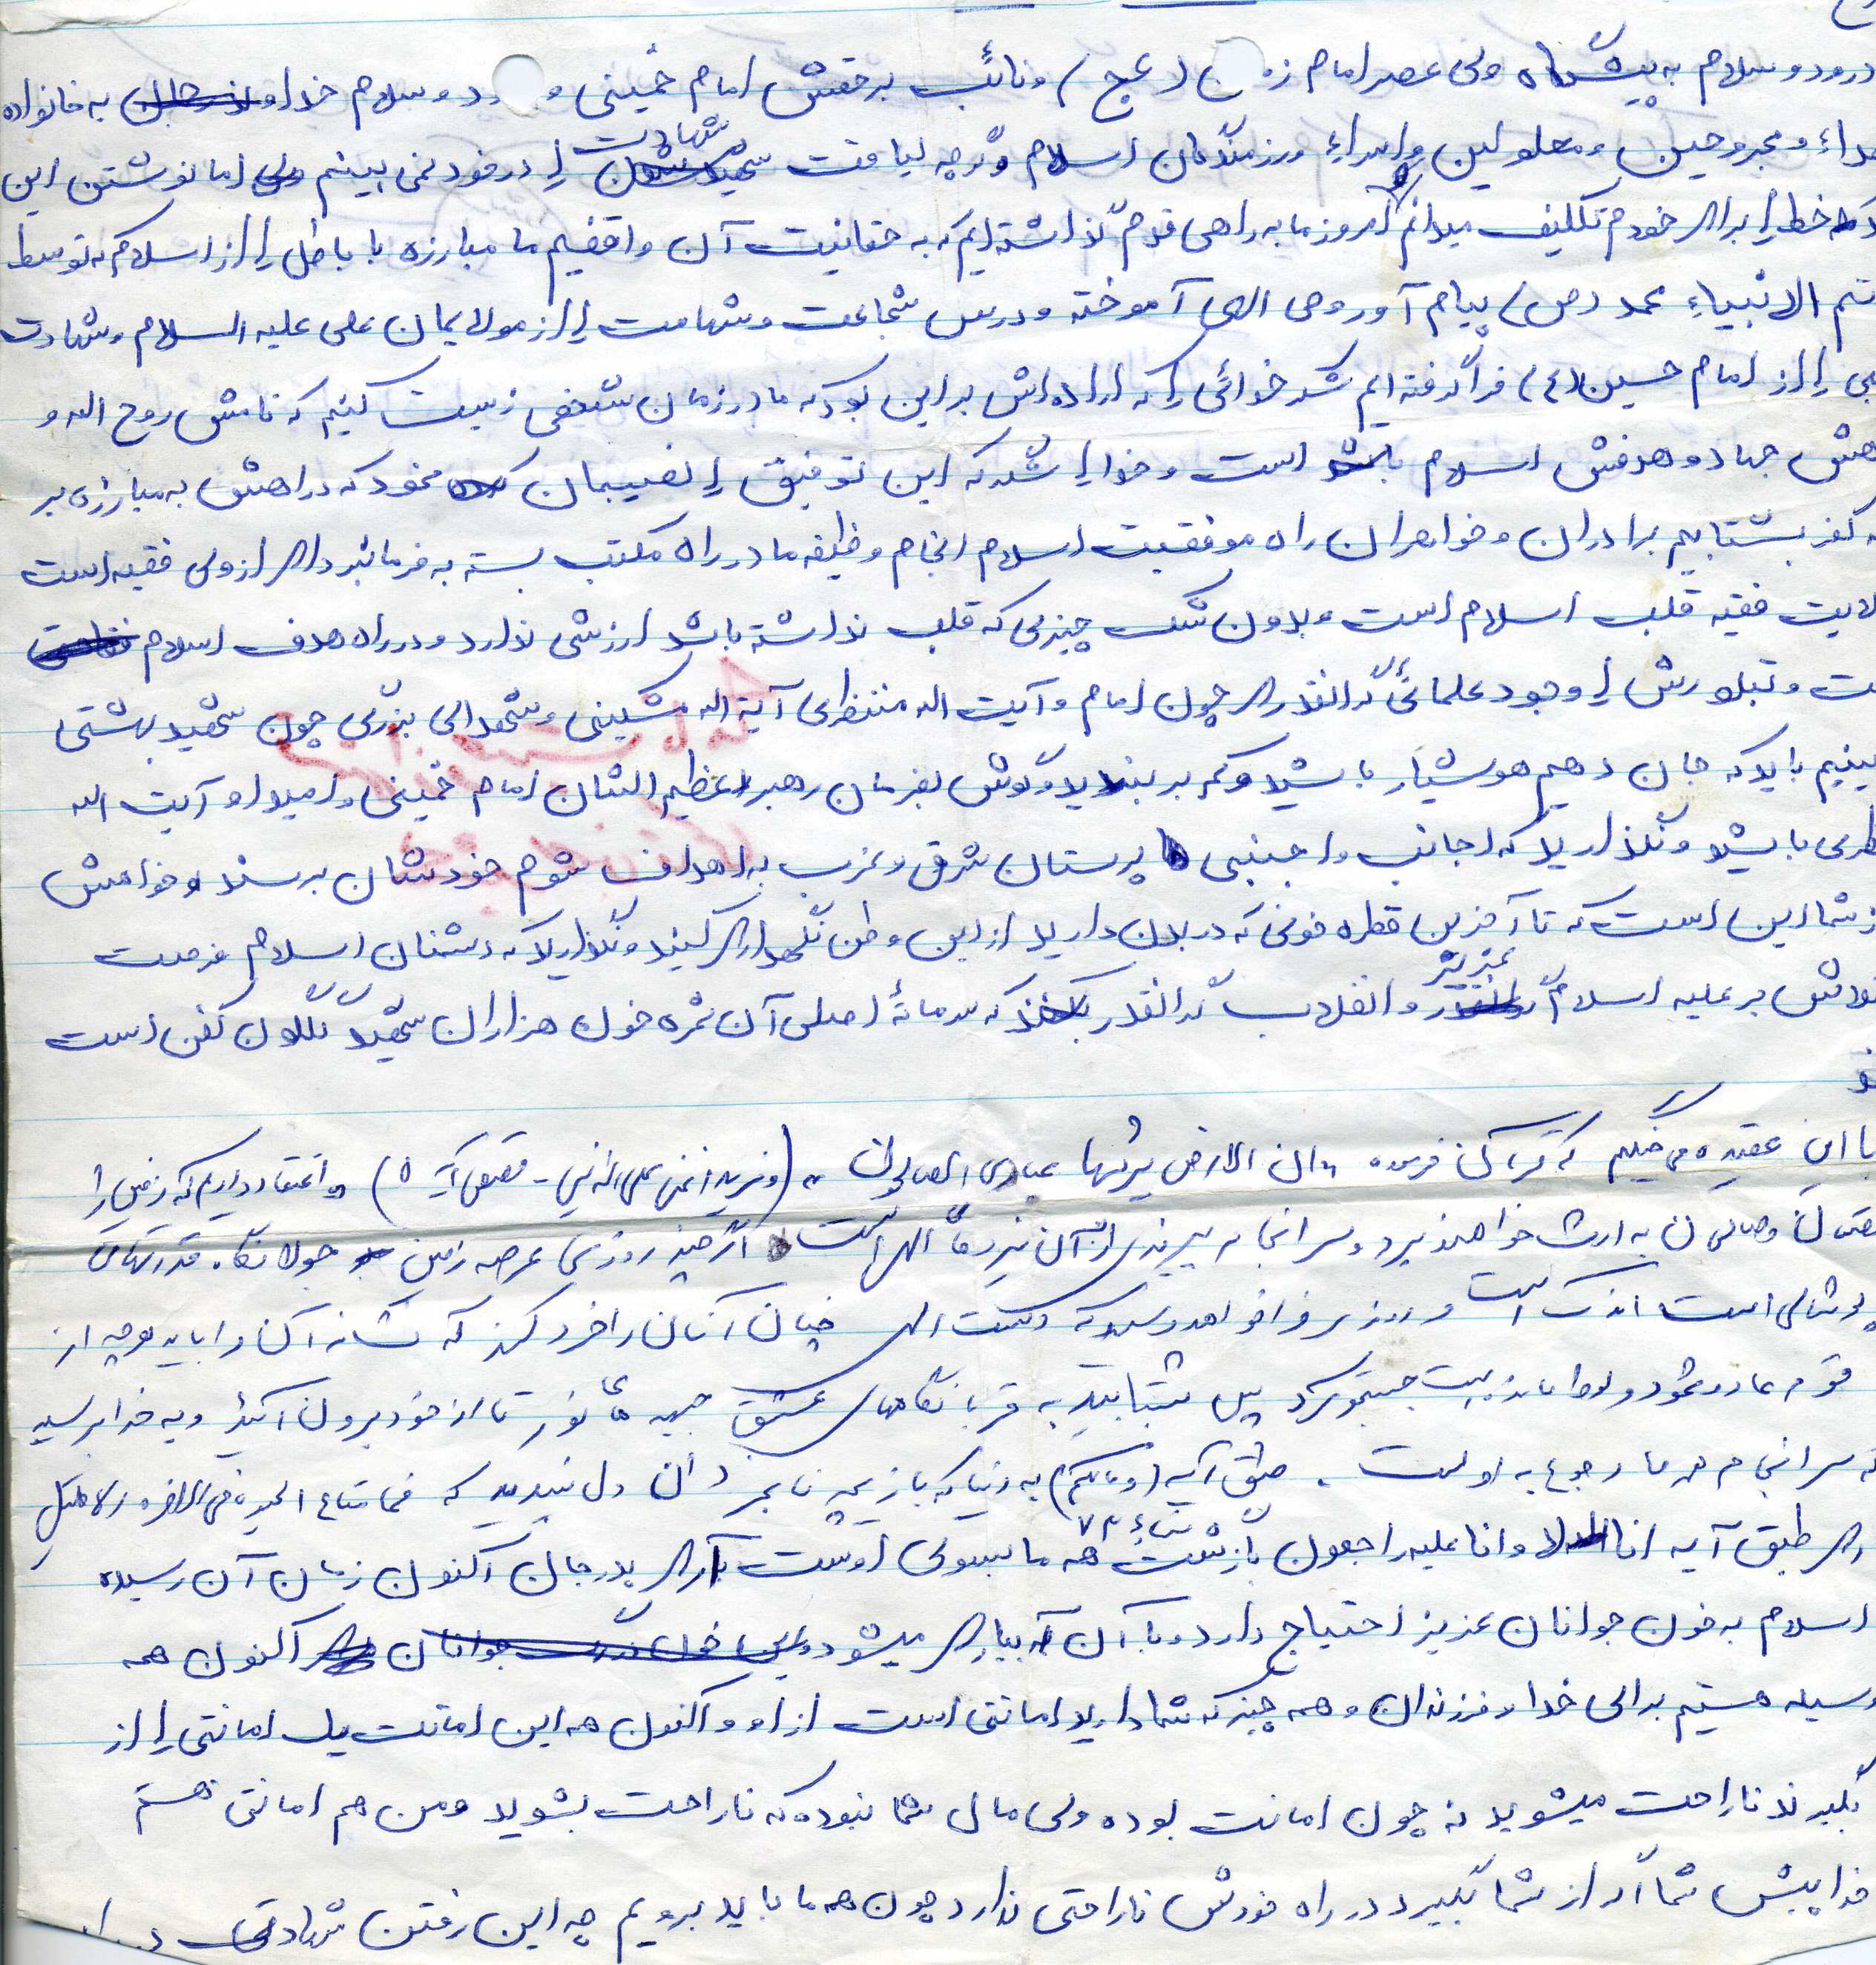 درود و سلام به پیشگاه ولی عصر امام (عج) و نائب برحقش امام خمینی و درود و سلام خدا به خانواده
و مجروحین و معلولین و اسراء و رزمندگان اسلام گرچه لیاقت شهادت را در خود نمی بینم اما نوشتن این
خط را برای خودم تکلیف میدانم امروز ما به راهی قدم گذاشته ایم که به حقانیت آن واقفیم ما مبارزه با باطل را از اسلام که توسط
الانبیاء محمد (ص) پیام آور وحی الهی آموخته و درس شجاعت و شهامت را از مولایمان علی علیه السلام و شهادت
را از امام حسین (ع) فرا گرفته ایم شکر خدائی را که اراده اش بر این بود که ما در زمان شخصی زیست کنیم که نامش روح الله و
جهاد و هدفش اسلام است و خدا را شکر که این توفیق را نصیبمان نمود که در راهش به مبارزه بر
کفر بشتابیم برادران و خواهران راه موفقیت اسلام انجام وظیفه ما در راه مکتب بسته به فرمانبرداری از ولی فقیه است
ولایت فقیه قلب اسلام است و بدون شک چیزی که قلب نداشته باشد ارزشی ندارد و در راه هدف اسلام
و تبلورش را وجود علمائی گرانقدری چون امام و آیت الله منتظری آیة الله مشکینی و شهدای بزرگی چون شهید بهشتی
باید که جان دهیم هوشیار باشید و کمر بر بندید و گوش بفرمان رهبر عظیم الشان امام خمینی و امید او آیت الله
باشید و نگذارید که اجانب و اجنبی پرستان شرق و غرب به اهداف شوم خودشان برسند و خواهش
از شما این است که تا آخرین قطره خونی که در بدن دارید از این وطن نگهداری کنید و نگذارید که دشمنان اسلام فرصت
تلاش بر علیه اسلام عزیز و انقلاب گرانقدر که سرمایهٔ اصلی آن ثمره خون هزاران شهید گلگون کفن است
با این عقیده می جنگیم که قرآن فرموده «ان الارض یرثها عبادی الصالحون» ( - قصص آیه ۵) و اعتقاد داریم که زمین را
و صالحان به ارث خواهند برد و سرانجام پیروزی از آن الهی است اگر چند روزی عرصه زمین جولانگاه قدرتهای
پوشالی است اندک است و روزی فرا خواهد رسید که دست الهی چنان آنان را خرد کند که نشانه آنان را باید از
قوم عاد و ثمود و لوط جستجو کرد پس بشتابید به قربانگاههای عشق جبهه های نور تا از خود برون آئید و به خدا برسید
که سرانجام همه ما رجوع به اوست. طبق آیه به دنیا که بازیچه نابخردان دل نبندید که فما متاع الحیوة فی الاخرة الا قلیل
نساء ۷۷
طبق آیه انا لله و انا علیه راجعون بازگشت همه ما بسوی اوست آری پدر جان اکنون زمان آن رسیده
اسلام به خون جوانان عزیز احتیاج دارد و با آن آبیاری میشود اکنون همه
وسیله هستیم برای خدا و فرزندان و همه چیز که شما دارید امانتی است از او و اکنون همه این امانت یک امانتی را از
بگیرند ناراحت میشوید نه چون امانت بوده ولی مال شما نبوده که ناراحت بشوید و من هم امانتی هستم
خدا پیش شما اگر از شما بگیرد در راه خودش ناراحتی ندارد چون همه ما باید برویم چه این رفتن شهادت